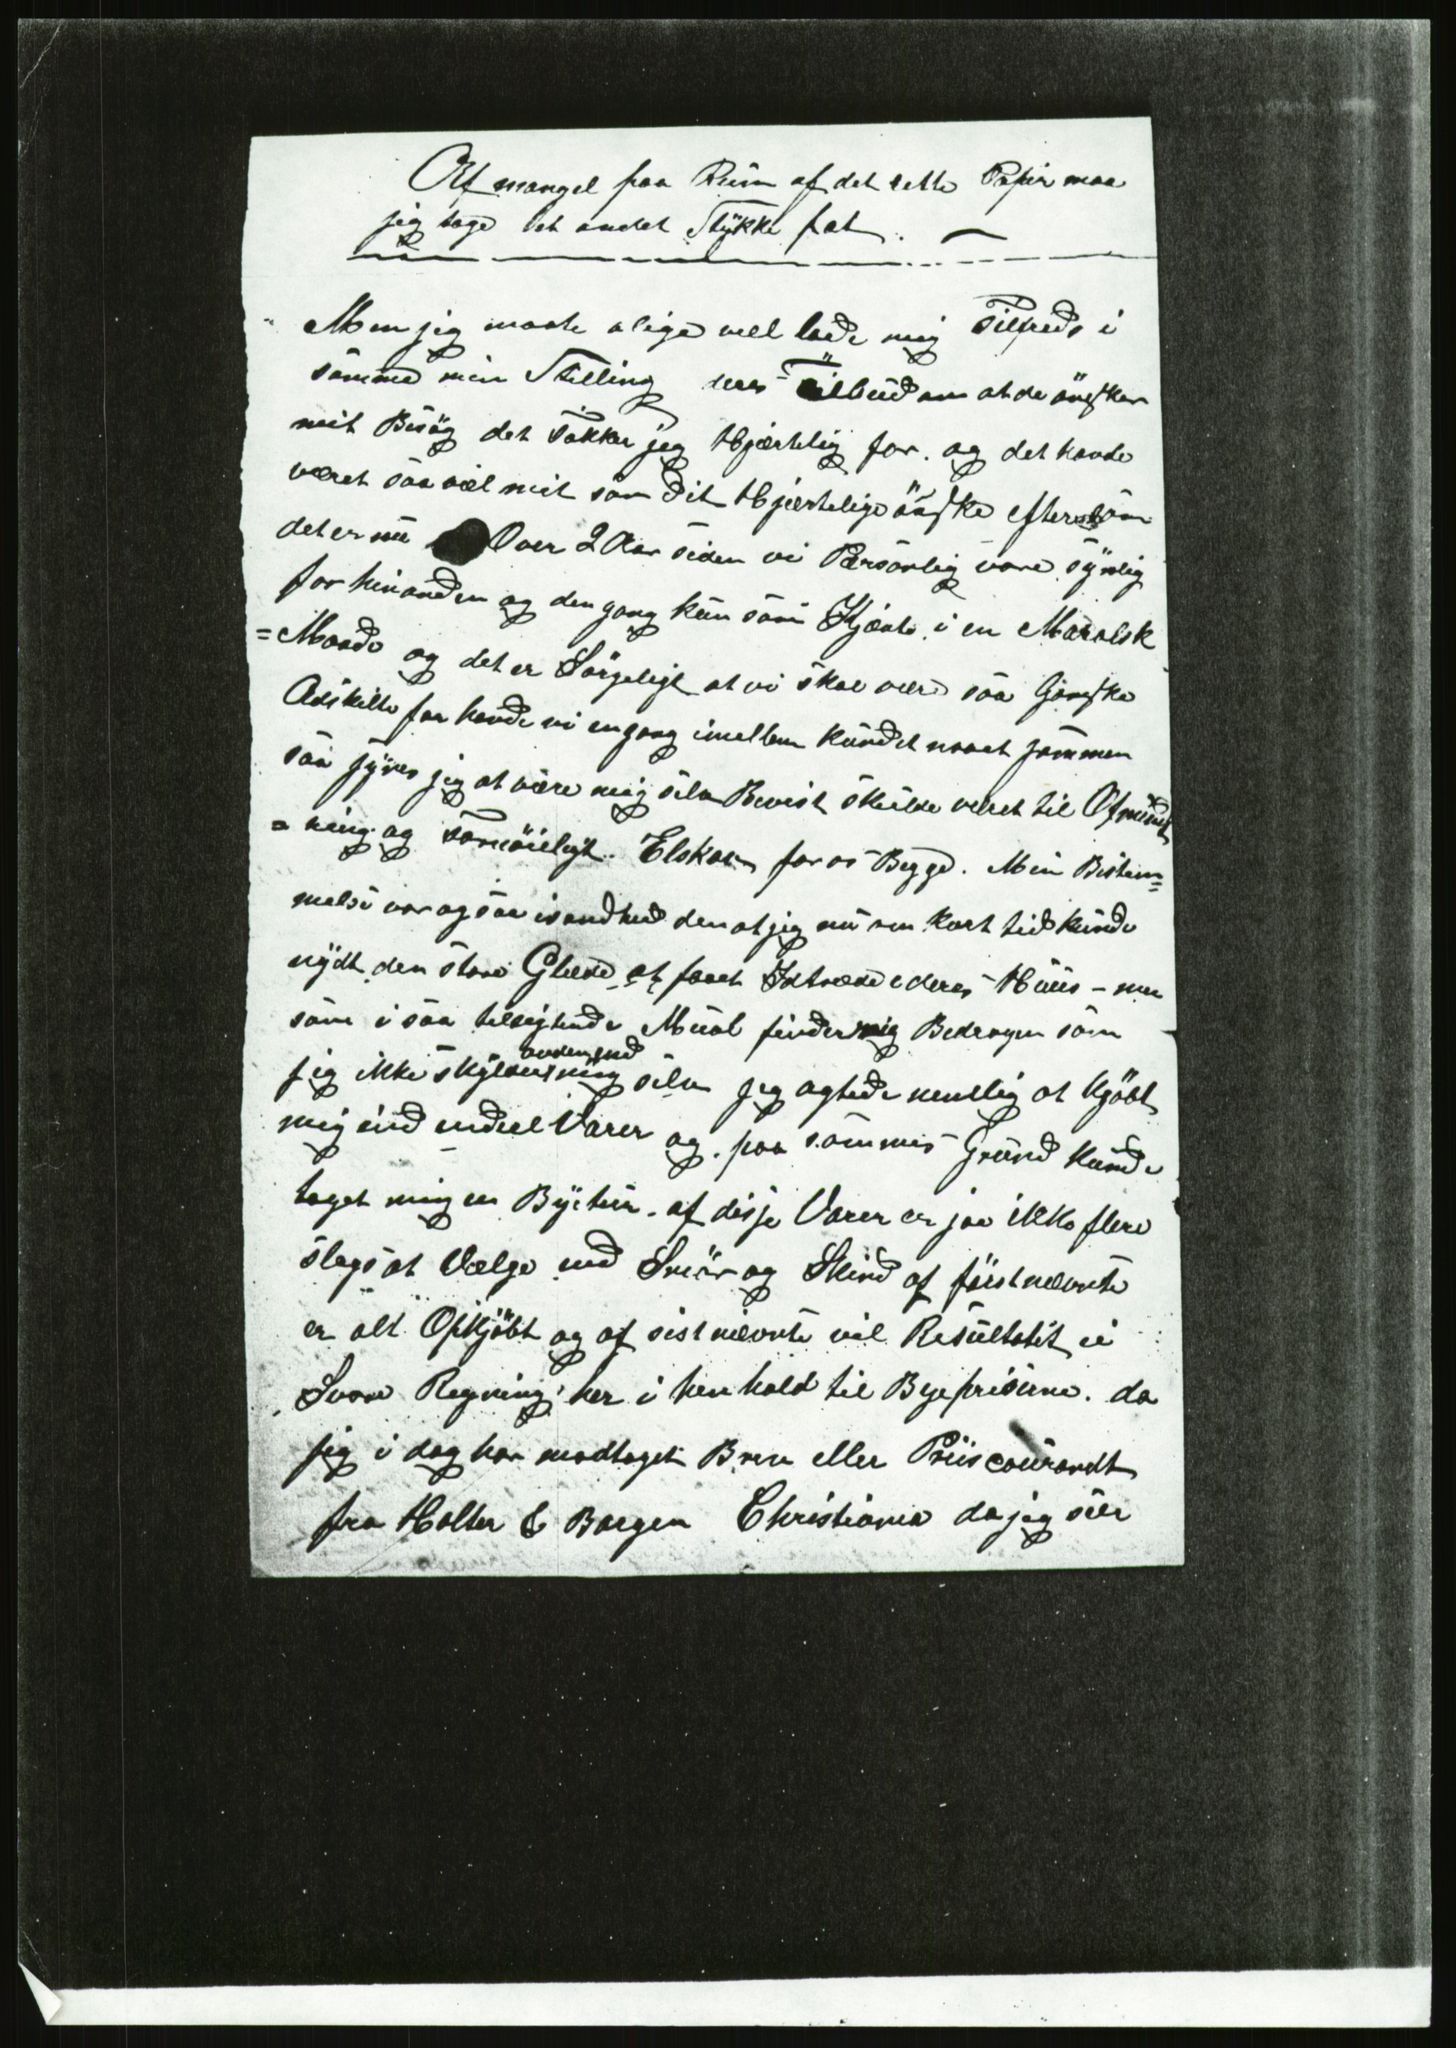 Af mangel paa Rum af det rette Papir maa
jeg tage det andet Stykke fat.
Men jeg maate alige vell lade mig Tilfreds i
samme min Stilling deres Tilbud om at de önsker
mit Besög det Takker jeg Hjærtelig for. og det havde
været saa vel mit som Dit Hjertelige önske eftersom
det er nu Over 2 Aar siden vi Personlig vare synlig
for hinanden og den gang kun som Kjænte i en Maralsk
=Maade og det er Sörgeligt at vi skal være saa Ganske
Adskilte for havde vi en gang imellem kundet naaet sammen
saa synes jeg at være mig selv Bevist skulde været til Opmund
=ring og Fornöieligt. Elskor for os Begge. Min Bestem=
melse var ogsaa isandhed den at jeg nu om kort tid kunde
nydt den store Glæde at faaet Idtræde i deres Huus - men
som i saa
jeg ikke skylder anden end mig selv jeg agtede nemlig at kjöbt
mig ind endeel Varer og paa sammes Grund kunde
taget mig en Byetur. af disse Varer er jaa ikke flere
slags at Vælge end Smör og Skind af förstnævnte
er alt Opkjöbt og af sistnævnte vil Resultatet ei
Svare Regning her i henhold til Byepriserne. da
jeg i dag har modtaget Brev eller Priiscourandt
fra Holter & Borgen Christiania da jeg seer